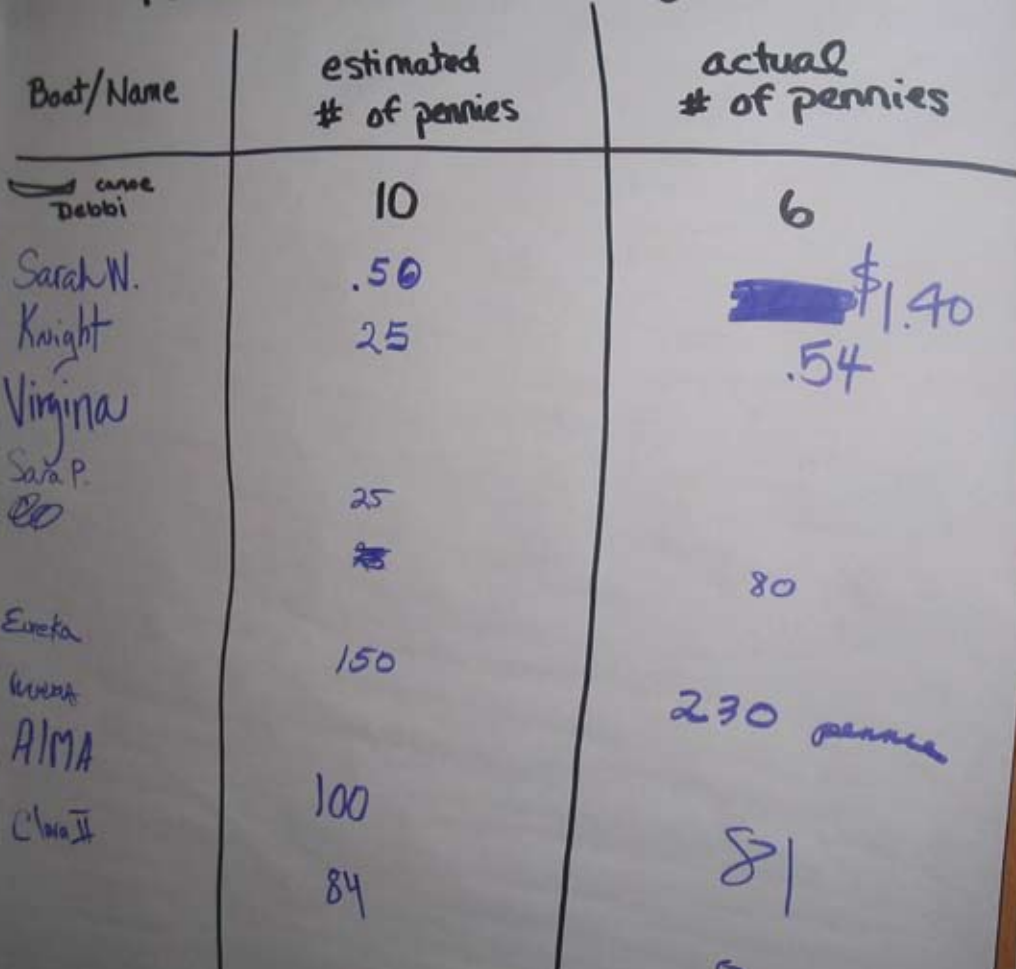 Boat/Name
estimated
# of pennies
actual
# of pennies
canoe
Debbi
10
6
Sarah W.
.50
$1.40
Knight
25
.54
Virgina
Sara P.
25
80
Eureka
150
230 pennies
AlMA
100
Clara II
81
84